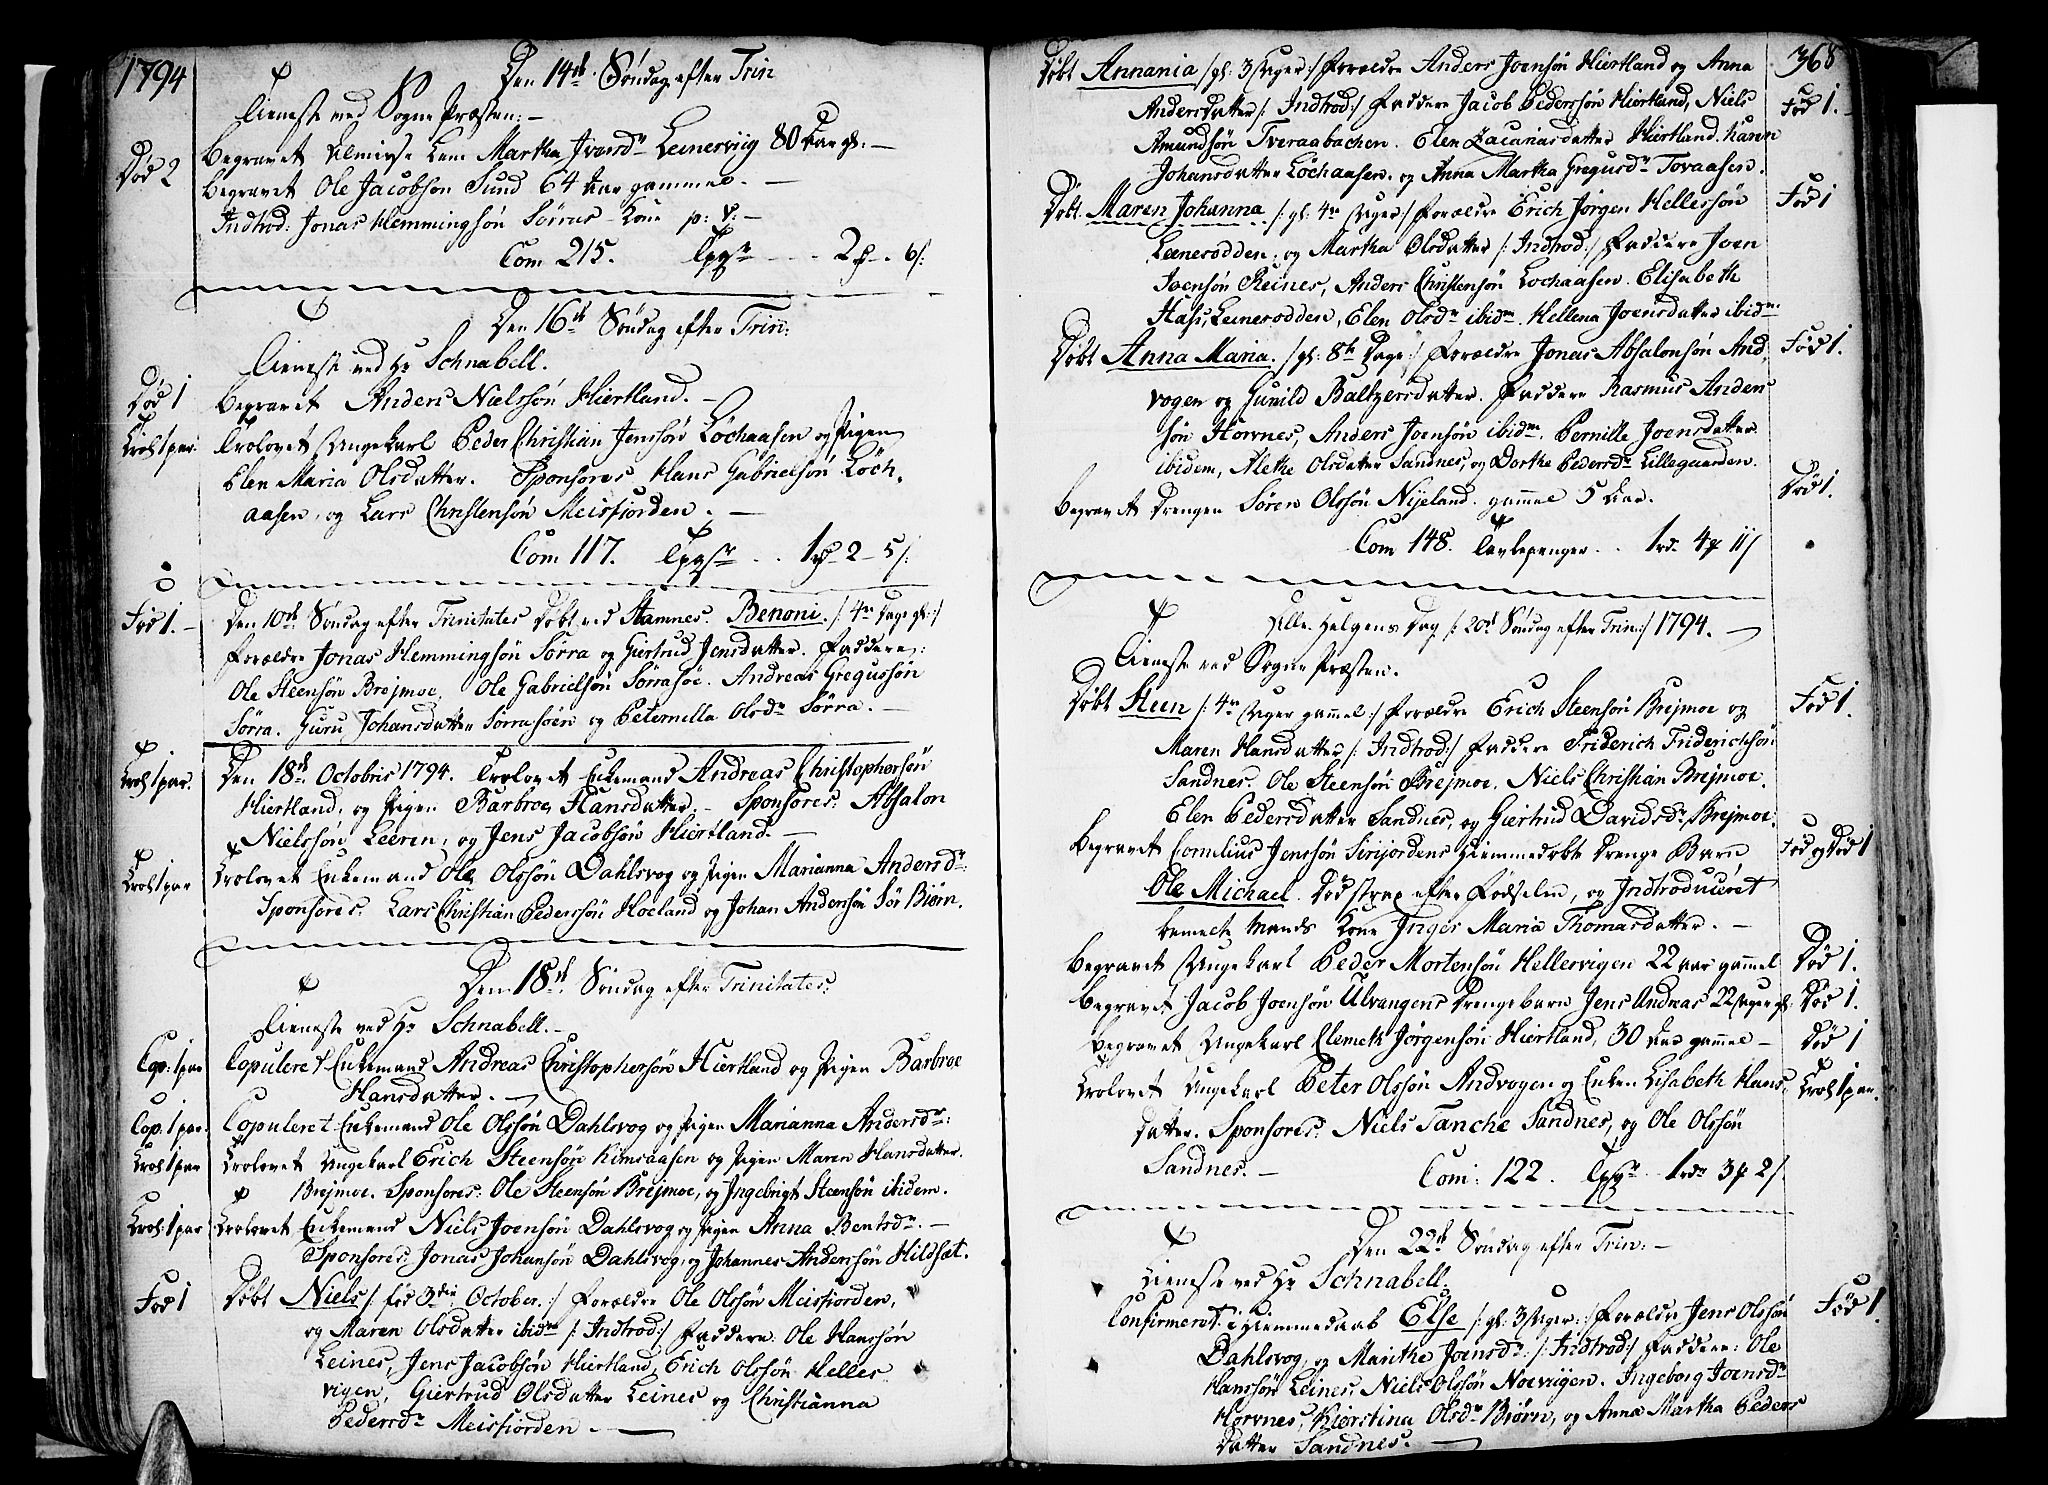 1794
Den 14de Søndag efter Trin
Tieneste ved Sogne Præsten: –
Død 2
Begravet Almisse Lem Martha Ivarsdr Leinerviig 80 Aar gl: –
Begravet Ole Jacobsøn Sund 64 Aar gammel. –
Indtrod: Jonas Hemmingsøn Sørras Kone p: v: –
Com 215.
Den 16de Søndag efter Trin:
Tieneste ved Hr Schnabell.
Død 1
Begravet Anders Nielssøn Hiertland. –
Trol 1 par.
Trolovet Ungekarl Peder Christian Jenssøn Lochaasen og Pigen
Elen Maria Olsdatter. Sponsores Hans Gabrielsøn Loch-
aasen, og Lars Christensøn Meisfiorden. –
Com 117.
Fød 1. –
Den 10de Søndag efter Trinitates Døbt ved Stamnes. Benoni /: 4re Dage gl: :/
Forældre Jonas Hemmingsøn Sørra og Giertrud Jensdatter. Faddere:
Ole Steensøn Brejmoe. Ole Gabrielsøn Sørrasøe. Andreas Gregussøn
Sørra. Guru Johansdatter Sørrasøen og Peternilla Olsdr Sørra. –
Trol 1 par.
Den 18de Octobris 1794. Trolovet Enkemand Andreas Christophersøn
Hiertland, og Pigen Barbroe Hansdatter. – Sponsores: Absalon
Nielssøn Leeren, og Jens Jacobsøn Hiertland. –
Trol 1 par
Trolovet Enkemand Ole Olssøn Dahlsvog og Pigen Marianna Andersdr
Sponsores: Lars Christian Pederssøn Hoeland og Johan Andersøn Sør Biørn.
Den 18de Søndag efter Trinitates:
Tieneste ved Hr Schnabell. –
Cop: 1 par
Copuleret Enkemand Andreas Christophersøn Hiertland og Pigen Barbroe
Hansdatter. –
Cop: 1 par.
Copuleret Enkemand Ole Olssøn Dahlsvog og Pigen Marianna Andersdr:
Trol 1 par
Trolovet Ungekarl Erich Steensøn Kimsaasen og Pigen Maren Hansdatter
Brejmoe. Sponsores: Ole Steensøn Brejmoe, og Ingebrigt Steensøn ibidem.
Trol: 1 par
Trolovet Enkemand Niels Joensøn Dahlsvog og Pigen Anna Bentsdr. –
Sponsores: Jonas Johansøn Dahlsvog, og Johannes Anderssøn Hildsæt.
Fød 1
Døbt Niels /: fød 3die October. :/ Forældre Ole Olssøn Meisfiorden,
og Maren Olsdatter ibidm /: Indtrod :/ Faddere: Ole Hanssøn
Leines, Jens Jacobsøn Hiertland, Erich Olssøn Helles
vigen, Giertrud Olsdatter Leines og Christianna
Pedersdr Meisfiorden. –
368
Døbt Annania /: gl: 3 Uger :/ Forældre Anders Joensøn Hiertland og Anna
Fød 1.
Andersdatter /: Indtrod :/ Faddere Jacob Pederssøn Hiertland, Niels
Amundsøn Tveraabachen. Elen Zacariasdatter Hiertland. Karen
Johansdatter Lochaasen. og Anna Martha Gregusdr Tovaasen.
Døbt. Maren Johanna /: gl: 4re Uger :/ Forældre Erich Jørgen Hellessøn
Fød 1
Leinesodden, og Martha Olsdatter /: Indtrod :/ Faddere Joen
Joensøn Reines, Anders Christensøn Lochaasen. Elisabeth
Hass, Leinesodden, Elen Olsdr ibidm. Hellena Joensdatter ibidm
Døbt Anna Maria. /: gl: 8te Dage :/ Forældre Jonas Absalonsøn And-
Fød 1.
vogen og Gunild Baltzersdatter. Faddere Rasmus Anders
søn Horvnes, Anders Joensøn ibidm. Pernille Joensdatter
ibidem, Alethe Olsdatter Sandnes, og Dorthe Pedersdr Lillegaarden.
Død 1.
Begravet Drengen Søren Olssøn Nijeland gammel 5 Aar.
Com 148. Tavlepenger . . 1rd 4 11
Alle Helgens Dag /: 20de Søndag efter Trin: :/ 1794. –
Tieneste ved Sogne Præsten.
Døbt Steen /: 4re Uger gammel :/ Forældre Erich Steensøn Brejmoe og
Fød 1.
Maren Hansdatter /: Indtrod :/ Faddere Friderich Friderichsøn
Sandnes. Ole Steensøn Brejmoe. Niels Christian Brejmoe.
Elen Pedersdatter Sandnes, og Giertrud Davidsdr Brejmoe.
Begravet Cornelius Jenssøn Sirijordens Hiemmedøbte Drenge Barn
Fød og Død 1
Ole Michael. Død strax efter Fødselen, og Indtroduceret
bemelte Mands Kone Inger Maria Thomasdatter. –
Begravet Ungekarl Peder Mortensøn Hellesvigen 22 aar gammel
Død 1.
Begravet Jacob Joensøn Ulvangens Drengebarn Jens Andreas 22 Uger gl:
Død 1.
Begravet Ungekarl Clemeth Jørgensøn Hiertland, 30 Aar gammel –
Død 1
Trolovet Ungekarl Peter Olssøn Andvogen og Enken Lisabeth Hans-
Trol 1 par.
datter. Sponsores: Niels Tanche Sandnes, og Ole Olssøn
Sandnes. –
Com: 122.
Den 22de Søndag efter Trin: –
Tieneste ved Hr Schnabell.
Confirmeret i Hiemmedaab Else /: gl: 3 Uger :/ Forældre Jens Olssøn
Fød 1.
Dahlsvog, og Marithe Joensdr: /: Indtrod :/ Faddere: Ole
Hanssøn Leines. Niels Olssøn Noevigen. Ingeborg Joensdr
Horvnes, Kierstina Olsdr Biørn, og Anna Martha Peders
datter Sandnes. –